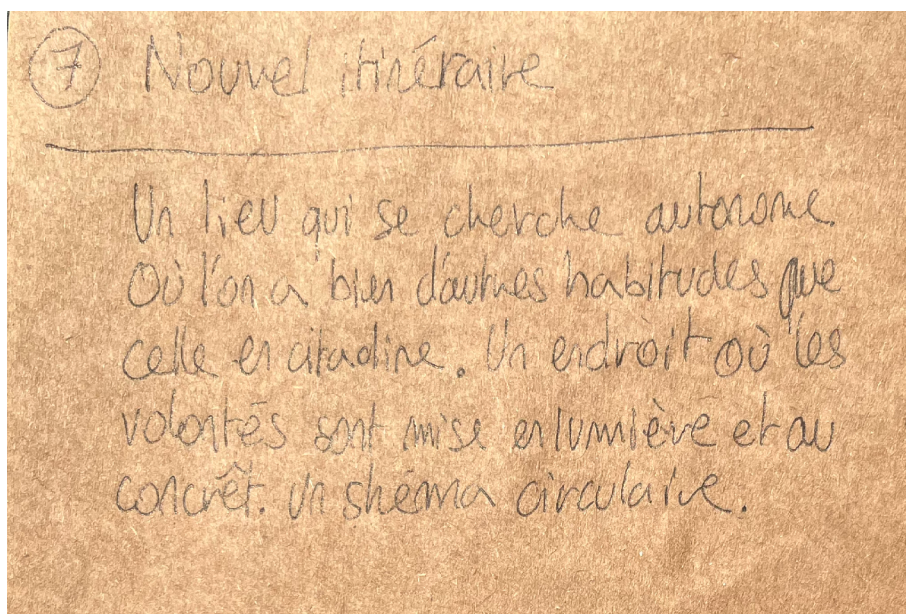 7 Nouvel itinéraire
Un lieu qui se cherche autonome.
Où l'on a bien d'autres habitudes que
celle en citadine. Un endroit où les
volontés sont mise en lumière et au
concrêt. Un shéma circulaire.